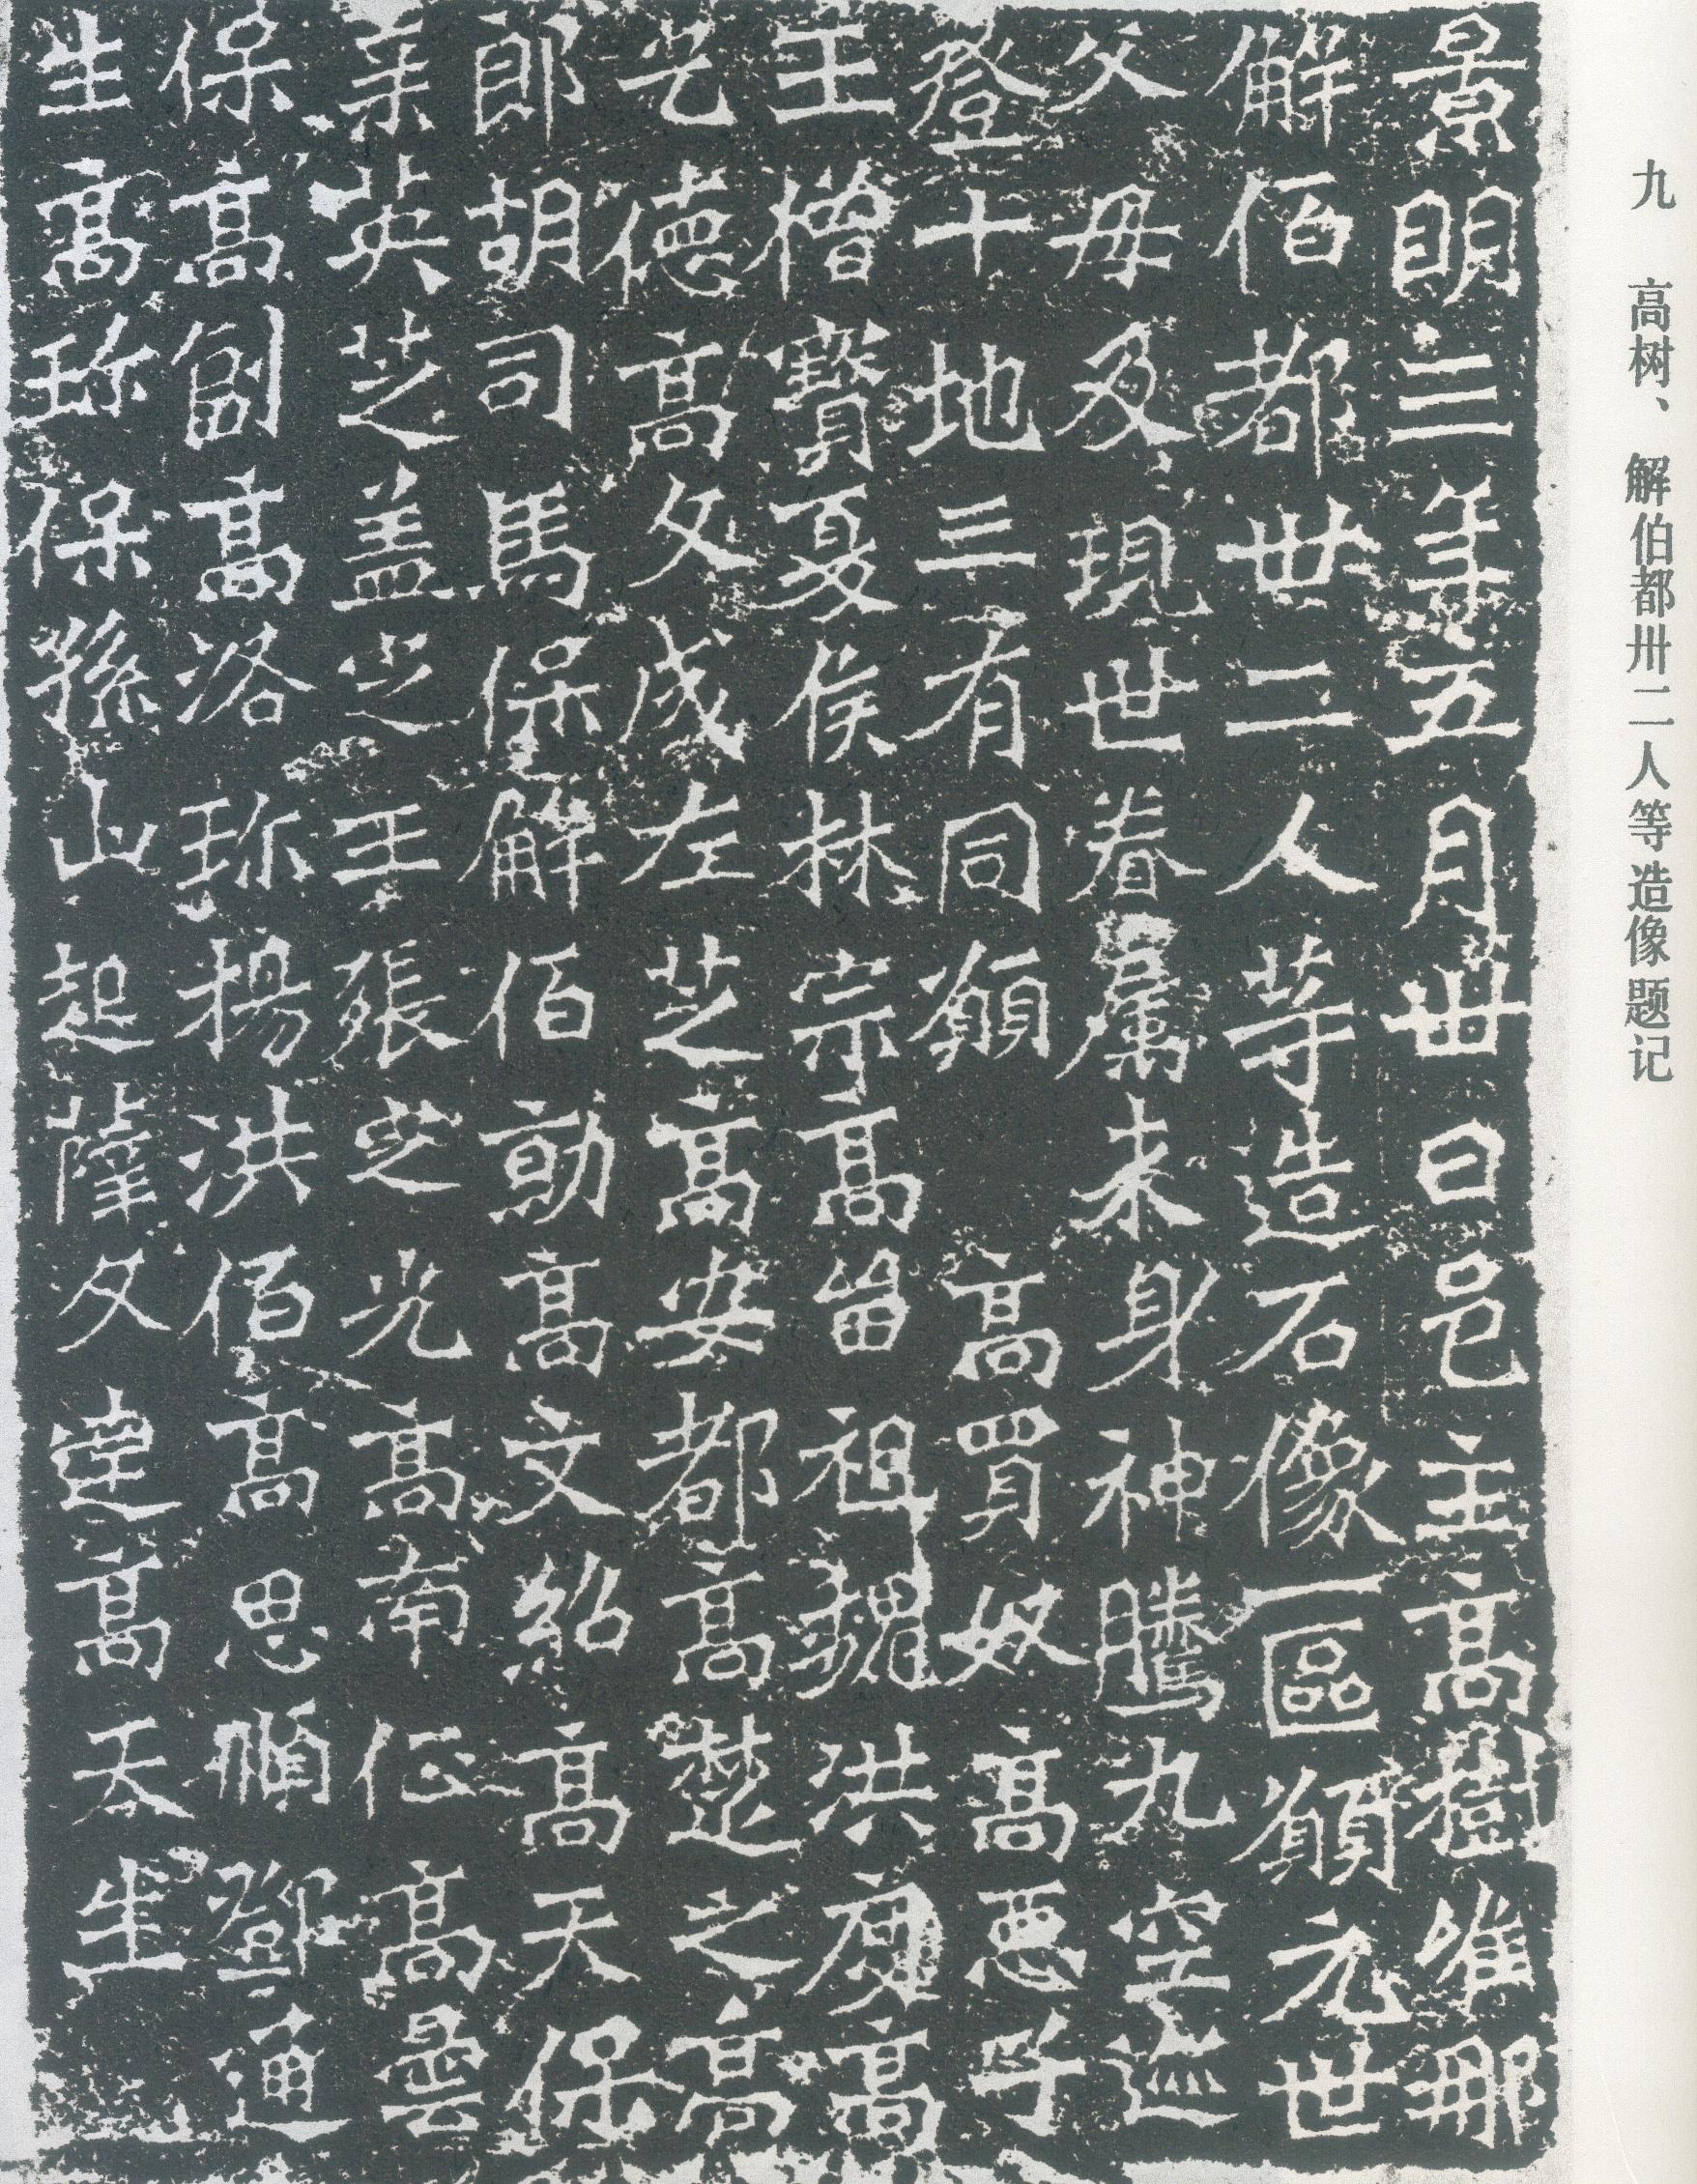 九 高树、解伯都卅二人等造像题记
景明三年五月卅日邑主高樹唯那
解佰都卅二人等造石像一區願元世
父母及現世眷屬来身神騰九空迹
登十地三有同願 高買奴高惡子
王僧寳夏侯林宗高留祖魏洪度高
乞德高文成左芝高安都高楚之高
郎胡司馬保解佰勛高文紹高天保
英芝盖芝王張芝光高南征高曇
保高副高洛珎楊洪佰高思順鄧通
生高珎保孫山起薩文達高天生